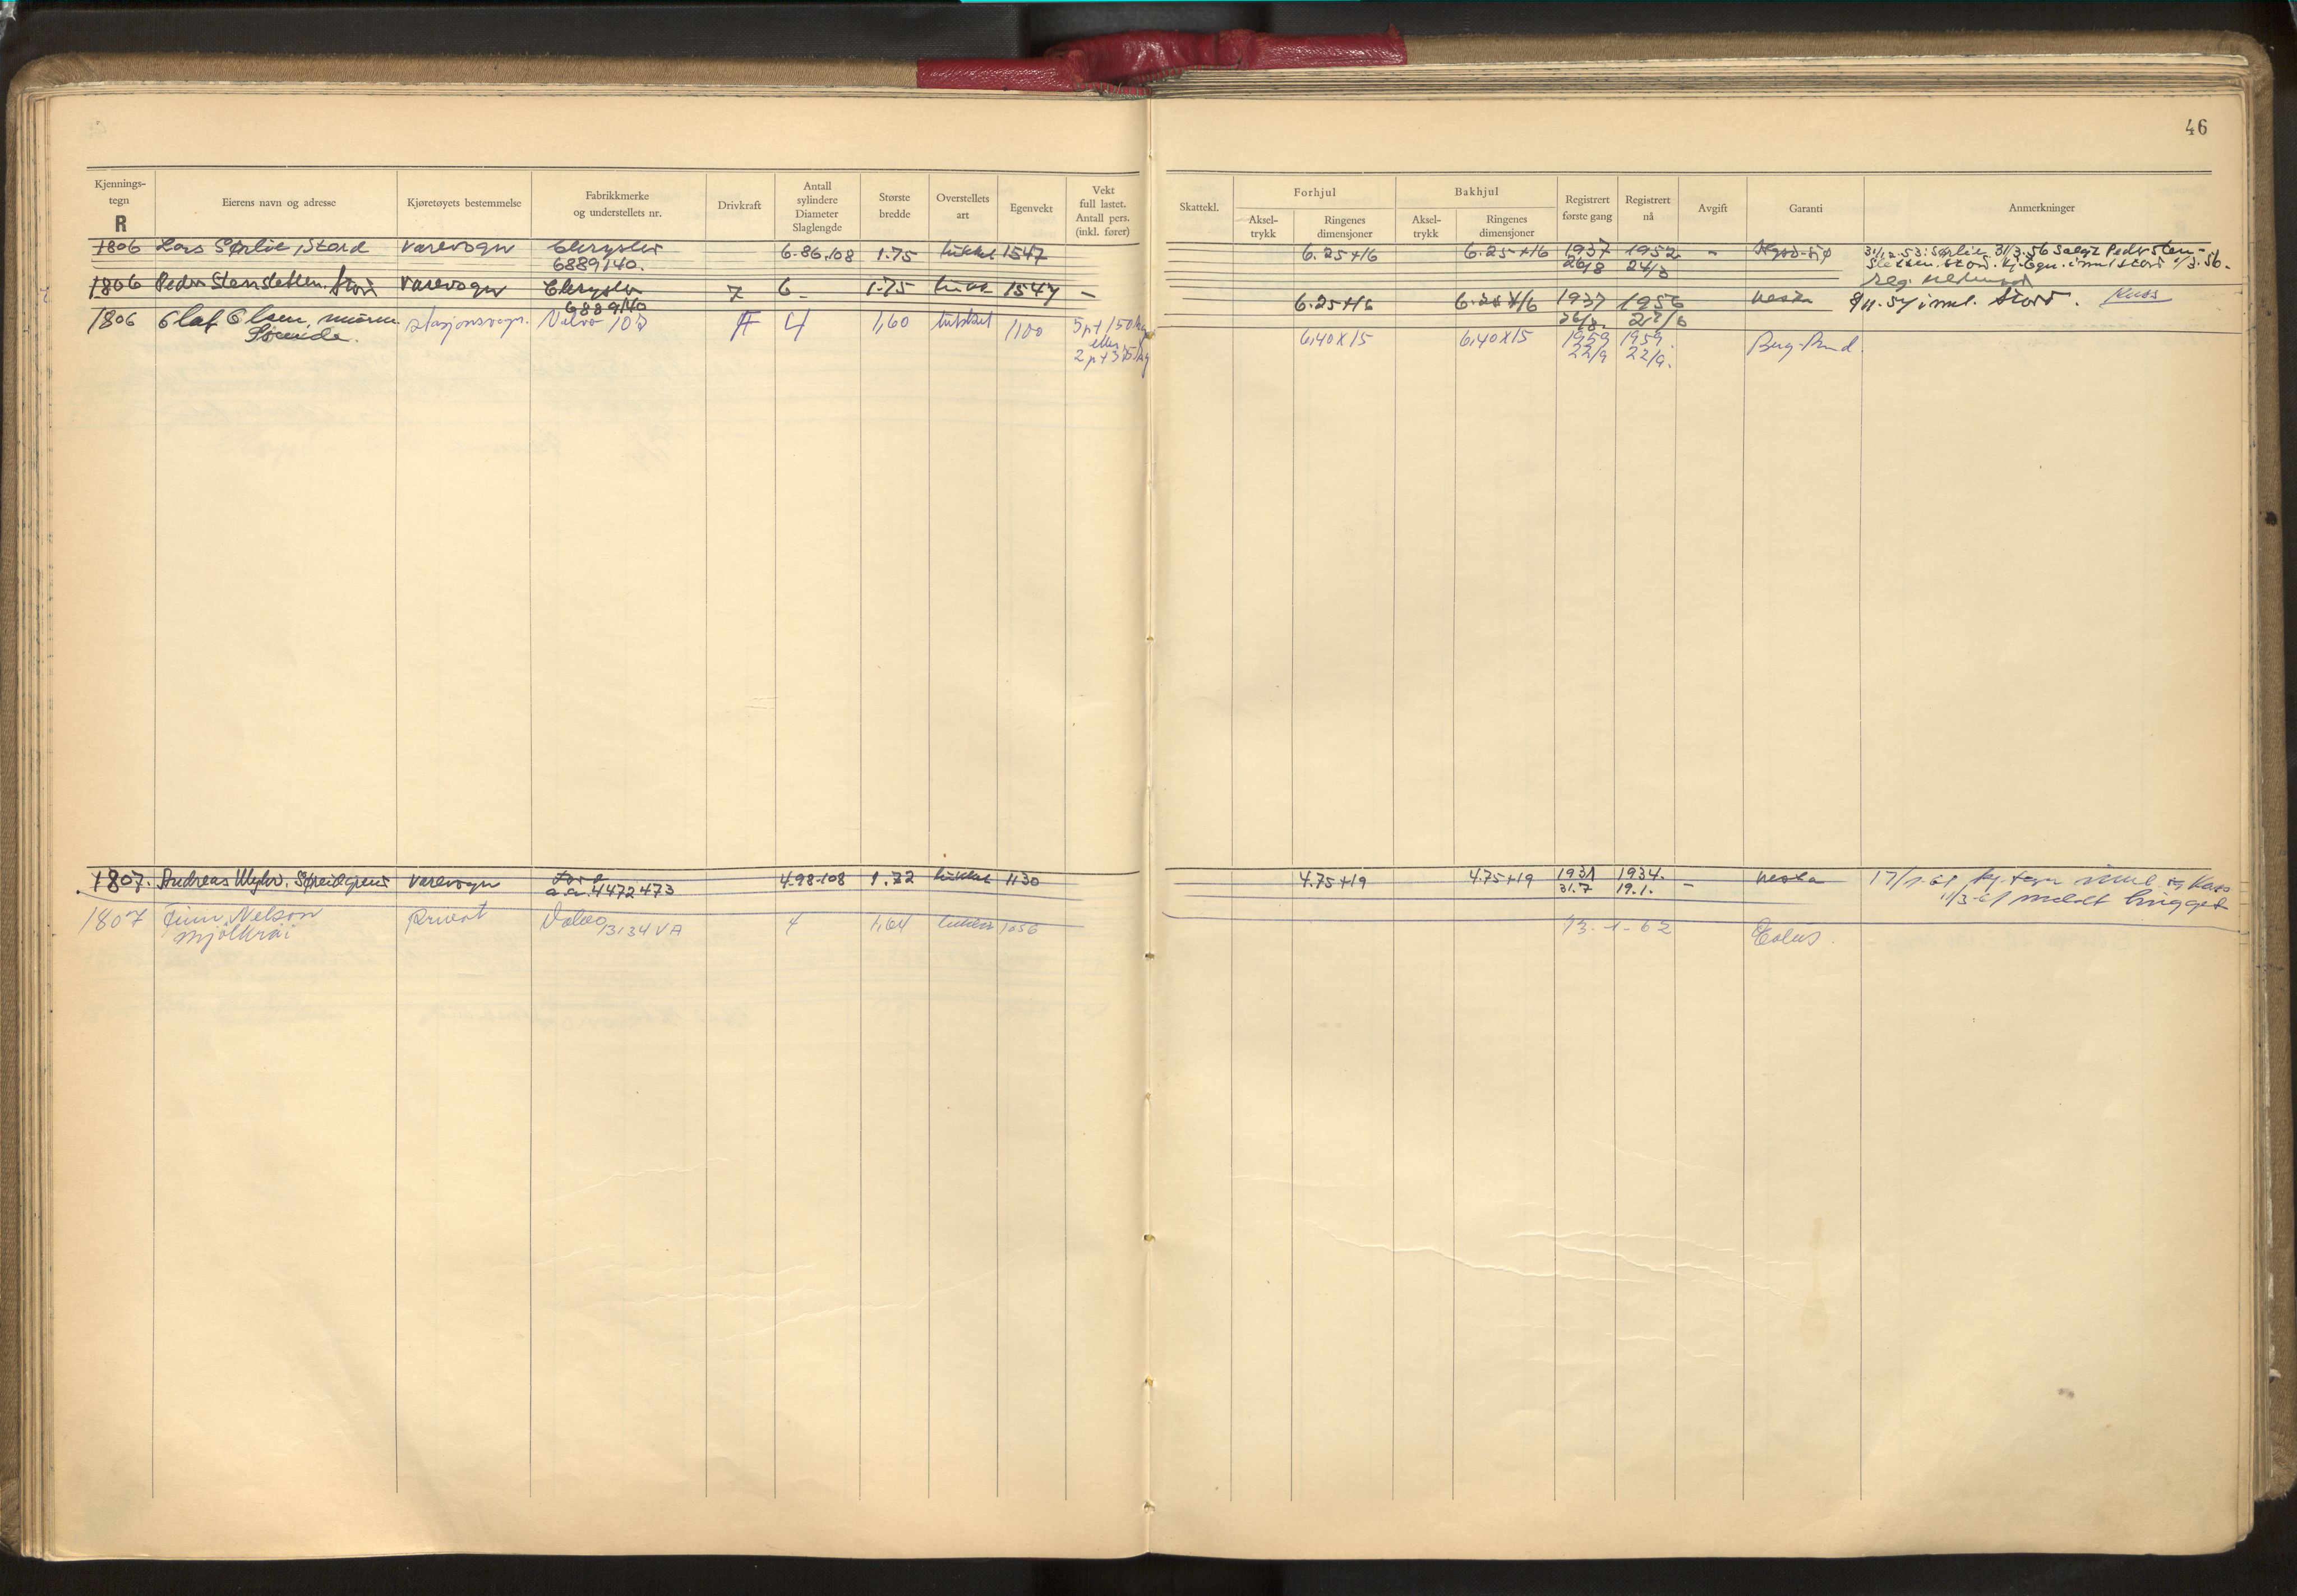 46
Kjennings-
tegn
R
Eierens navn og adresse
Kjøretøyets bestemmelse
Fabrikkmerke
og understellets nr.
Drivkraft
Antall
sylindere
Diameter
Slaglengde
Største
bredde
Overstellets
art
Egenvekt
Vekt
full lastet.
Antall pers.
(inkl. fører)
Skattekl.
Forhjul
Aksel-
trykk
Ringenes
dimensjoner
Bakhjul
Aksel-
trykk
Ringenes
dimensjoner
Registrert
første gang
Registrert
nå
Avgift
Garanti
Anmerkninger
1806 Lars Sørlie, Stord varevogn Chrysler 6-86-108 1.75 lukket 1547 6.25+16 6.25+16 1937 1952 -
6889140. 26/8 24/3
31/12.53: Sørlie 31/3.56 Solgt Peder Sten-
sletten. Stord. Kj. tegn. innl Stord /3.56.
1806 Peder Stensletten. Stord varevogn Chrysler 7 6- 1.75 lukk 1547 - 6.25+16 6.25+16 1937 1956 Neska 9/11.57 innl. Stord.
6889140 26/8. 27/6
1806 Olaf Olsen, stasjonsvogn. Volvo A 4 1,60 lukket 1100 5 p + 150 kg 6,40x15 6,40x15 1959 1959.
eller
2 p + 375 kg 22/9 22/9.
1807. Andreas varevogn Ford 4-98-108 1.72 lukket 1130 4.75+19 4.75+19 1931 1934. - Neska 17/1-61 kj. tegn innl. og
a.a. 4472473 31.7 19.1. 1/3-61 meldt hugget
1807 Finn Nelson Privat Volvo 13134 VA 4 1,64 lukket 1056 13-1-62 Eolus.
Mjølkråi